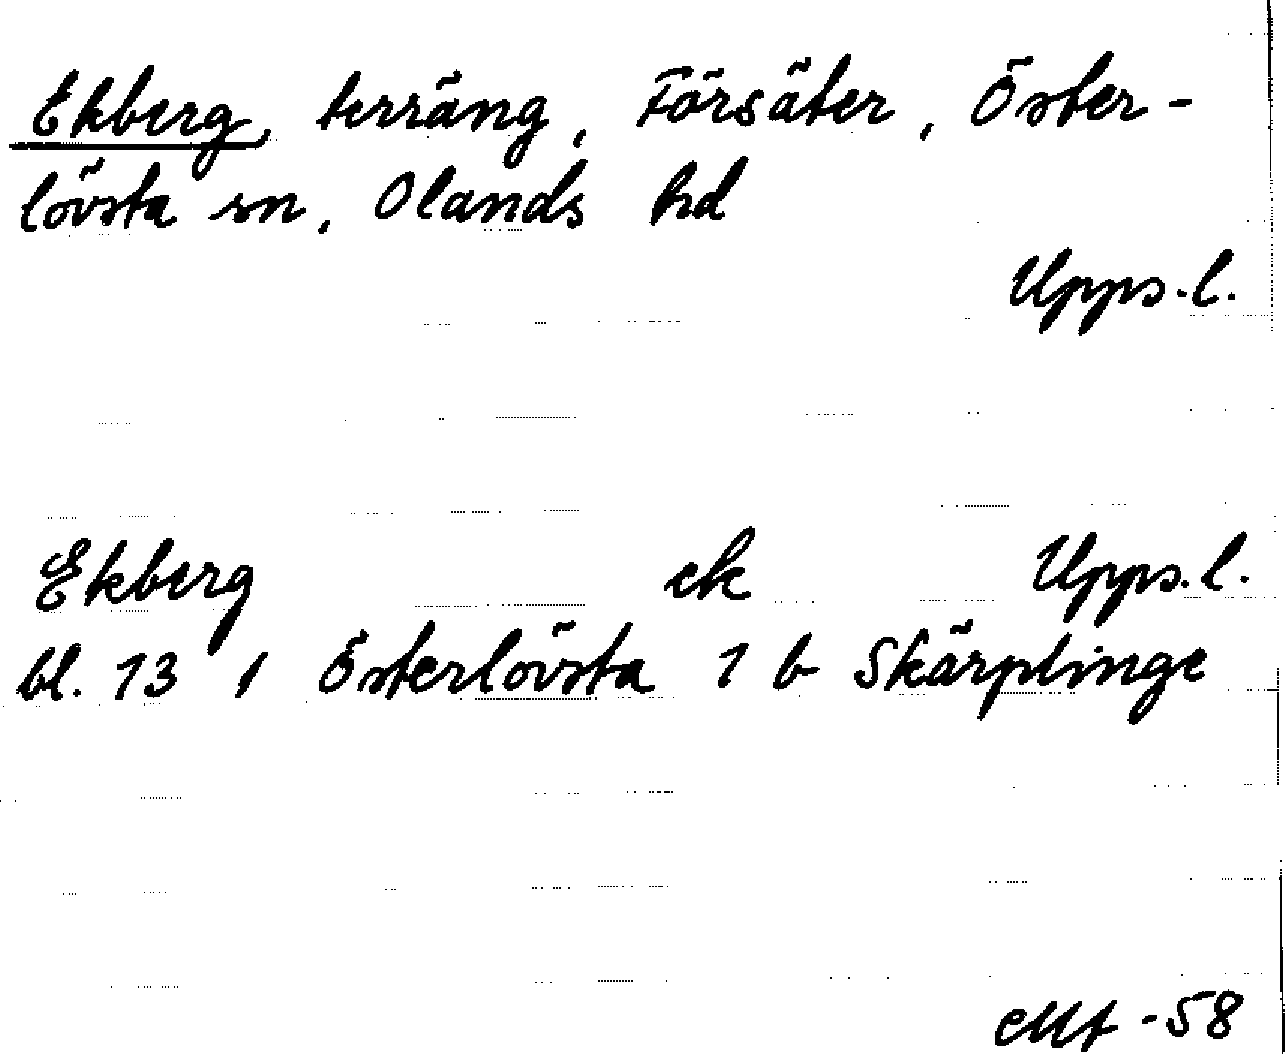 Ekberg, terräng, Försäter, Öster-
lövsta sn, Olands hd
Upps.l.
Ekberg ek Upps.l.
bl. 13 1 Österlövsta 1 b Skärplinge
-58